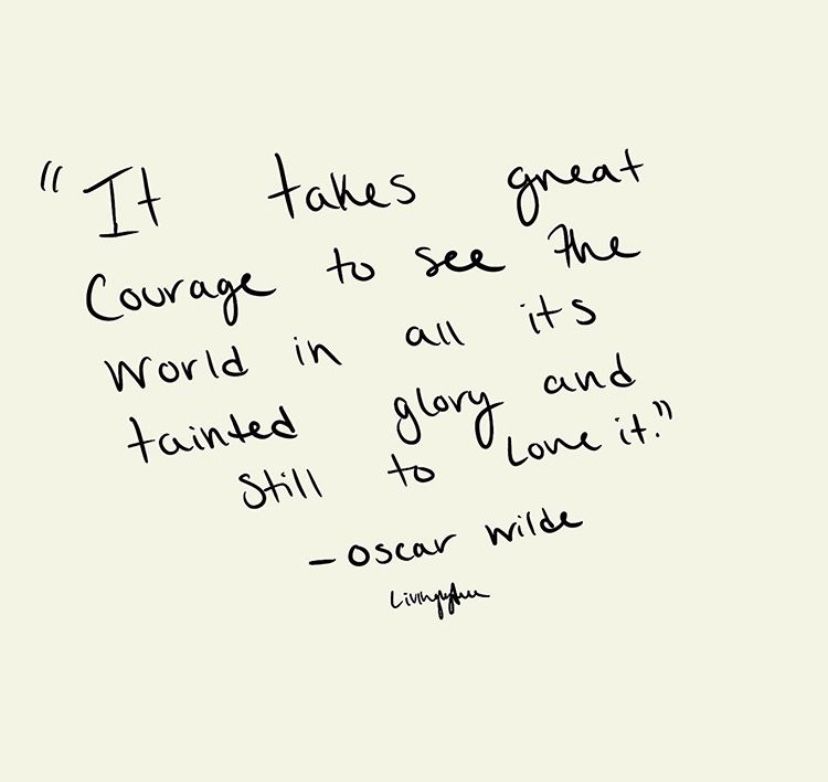 "It takes great
Courage to see the
World in all its
tainted glory and
Still to Love it."
- Oscar Wilde